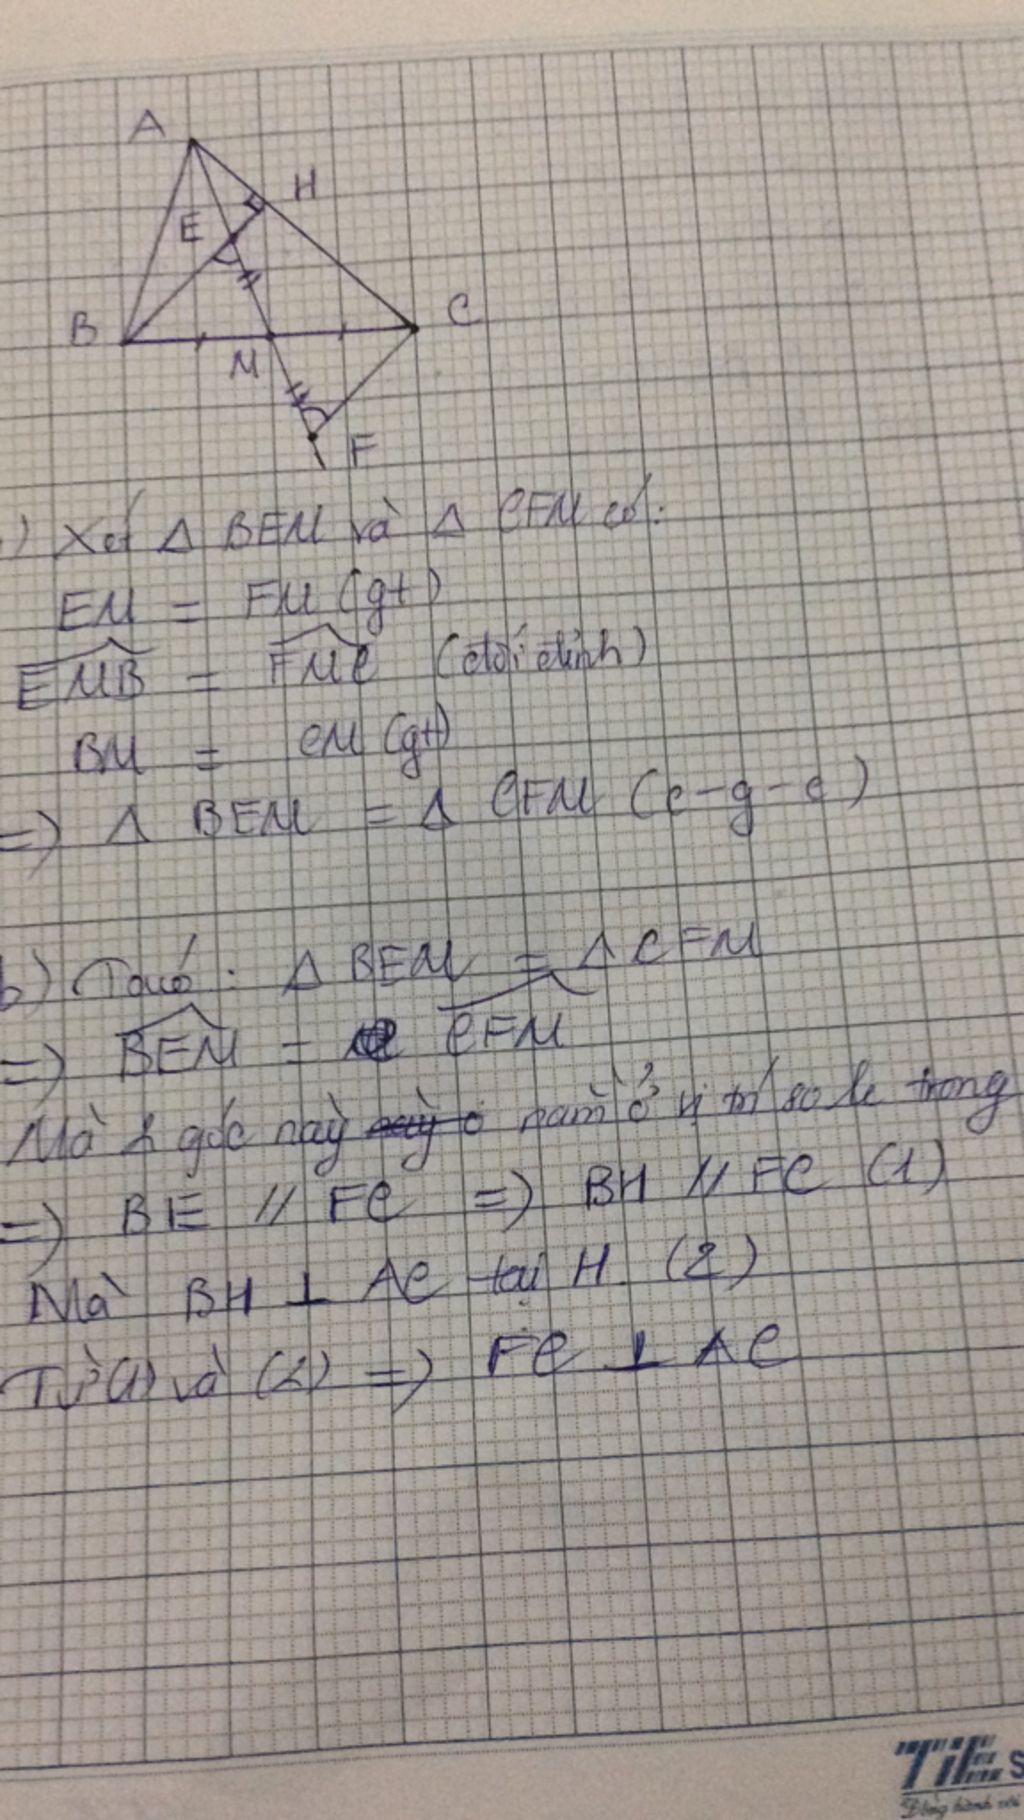 A
H
E
B
C
M
F
) Xét Δ BEM và Δ CFM có:
EM = FM (gt)
EMB = FMC (đối đỉnh)
BM = CM (gt)
=) Δ BEM = Δ CFM (c-g-c)
b) Ta có: Δ BEM = Δ CFM
=) BEM = CFM
Mà 2 góc này nằm ở vị trí so le trong
=) BE // FC =) BH // FC (1)
Mà BH ⊥ AC tại H (2)
Từ (1) và (2) =) FC ⊥ AC
TiE S